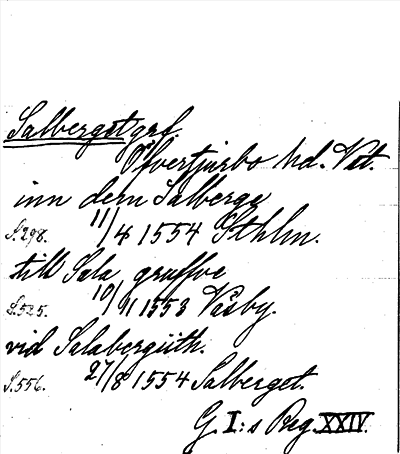 Salberget grf.
Öfvertjurbo hd. Vst.
inn dem Salberge
S. 298. 11/4 1554 Sthlm.
till Sala gruffve
S. 525. 10/9 1553 Väsby.
vid Salabergith.
S. 556. 27/8 1554 Salberget.
G. I:s Reg. XXIV.